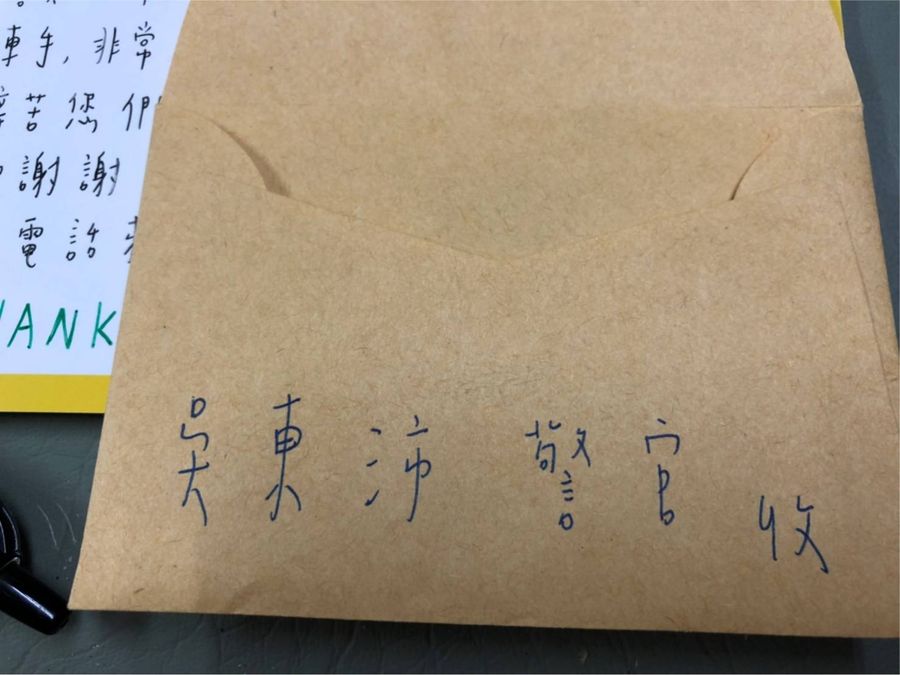 車手,非常
苦您們
謝謝
電話
HANK
吳東沛 警官
收